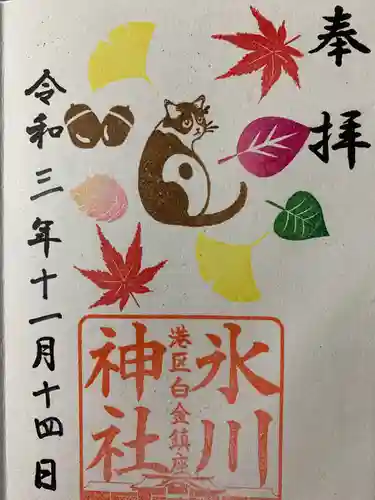 奉拝
氷川
港区白金鎮座
神社
令和三年十一月十四日